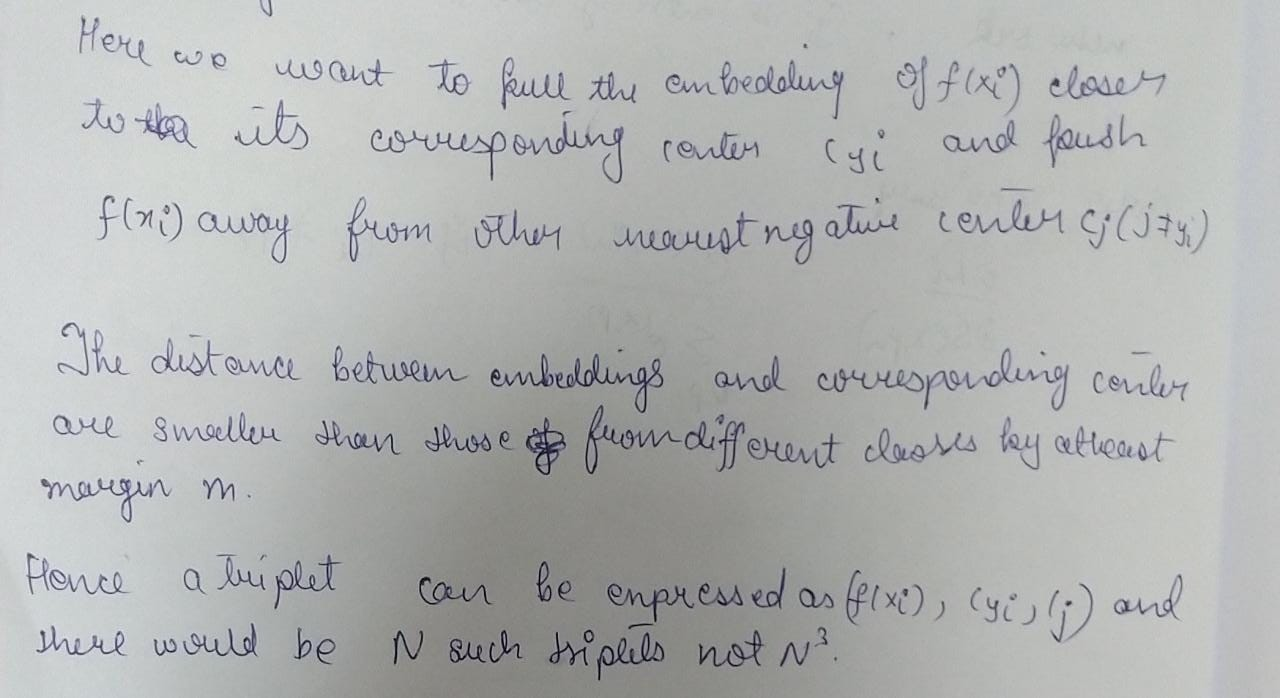 Here we want to pull the embedding of f(xi) closer
to its corresponding center cyi and push
f(xi) away from other nearest negative center cj(j≠yi)
The distance between embeddings and corresponding center
are smaller than those from different classes by atleast
margin m.
Hence a triplet can be expressed as (f(xi), cyi, cj) and
there would be N such triplets not N³.